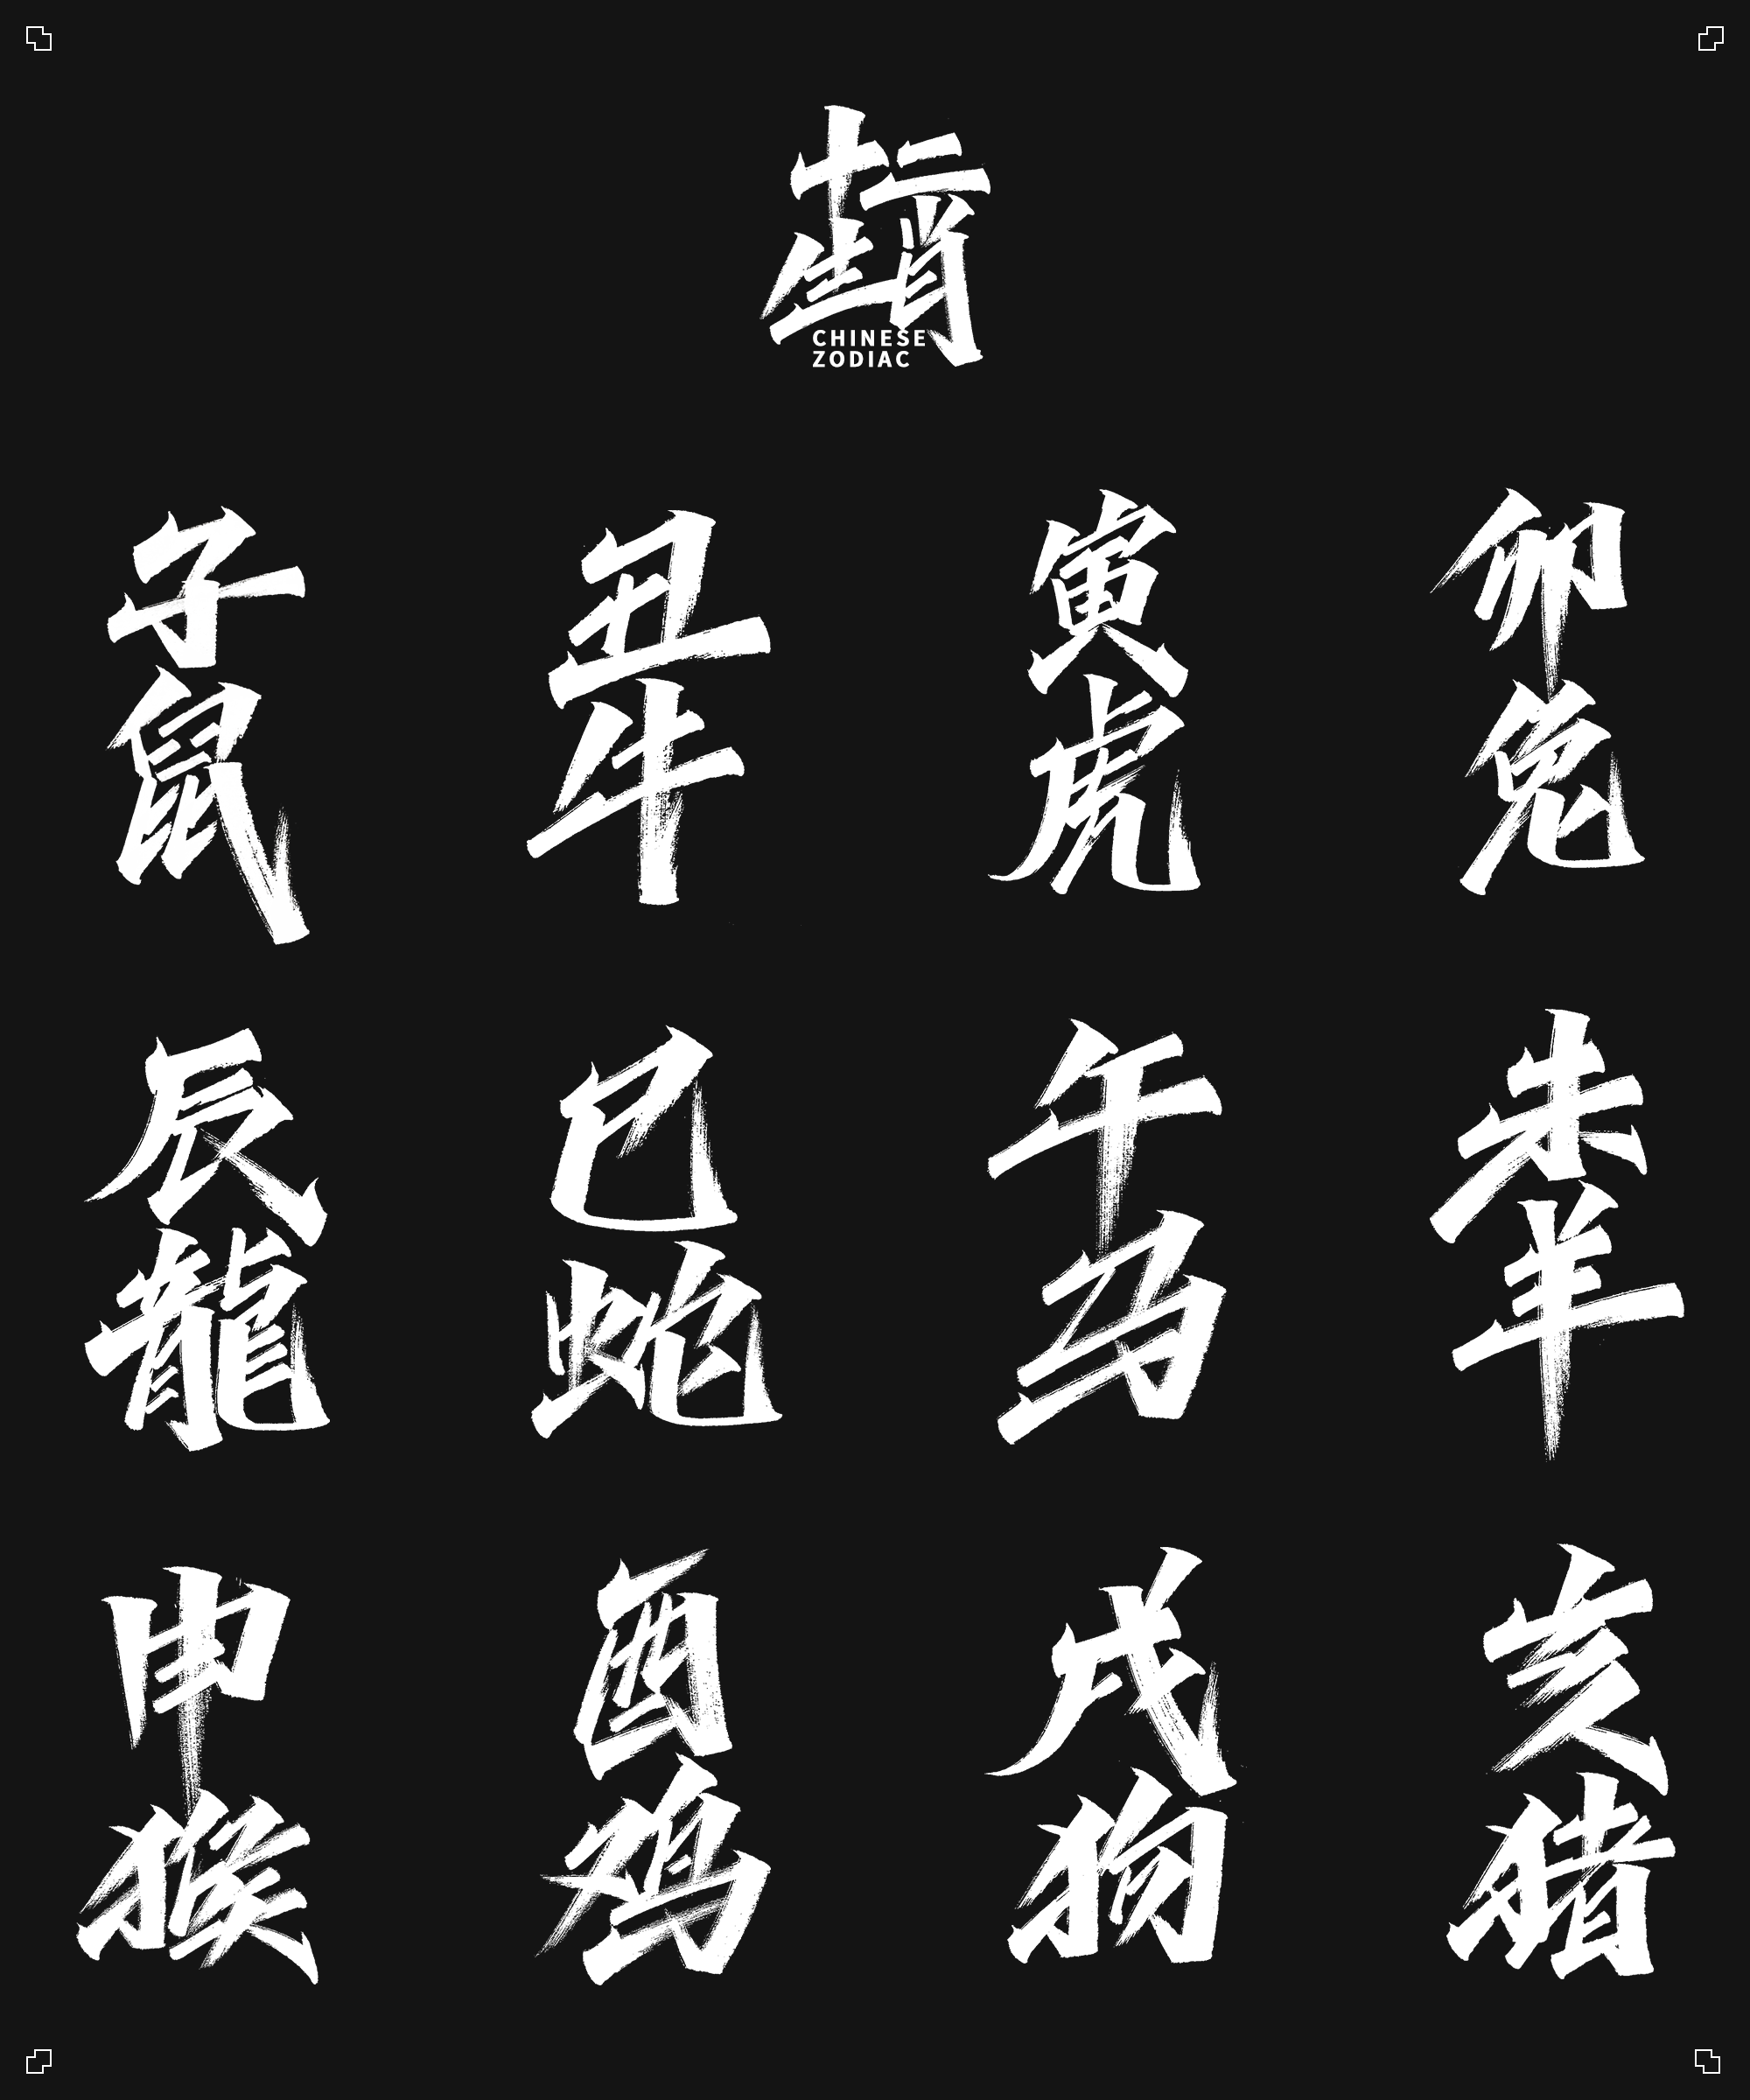 十二生肖
CHINESE
ZODIAC
子鼠
丑牛
寅虎
卯兔
辰龍
巳蛇
午马
未羊
申猴
酉鸡
戌狗
亥猪